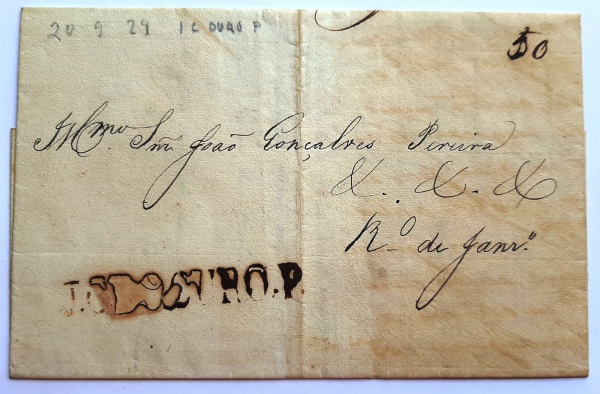 20 9 29 I C OURO P
50
Illmo Snr. João Gonçalves Pereira
&. &. &
Ro. de Janro.
URO.P.